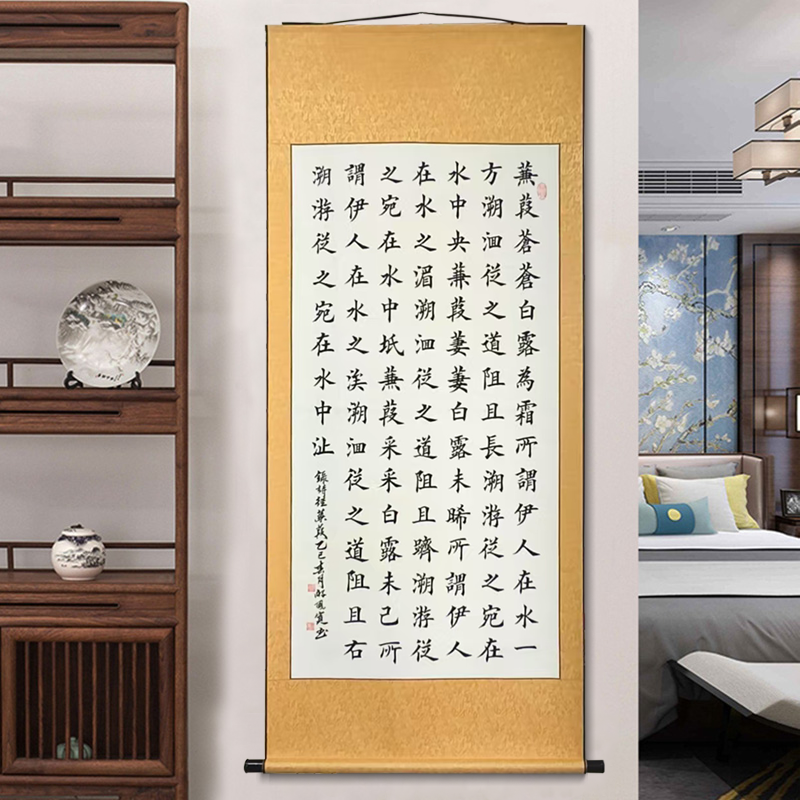 蒹葭蒼蒼白露為霜所謂伊人在水一
方溯洄從之道阻且長溯游從之宛在
水中央蒹葭萋萋白露未晞所謂伊人
在水之湄溯洄從之道阻且躋溯游從
之宛在水中坻蒹葭采采白露未已所
謂伊人在水之涘溯洄從之道阻且右
溯游從之宛在水中沚
錄詩經蒹葭乙巳春月